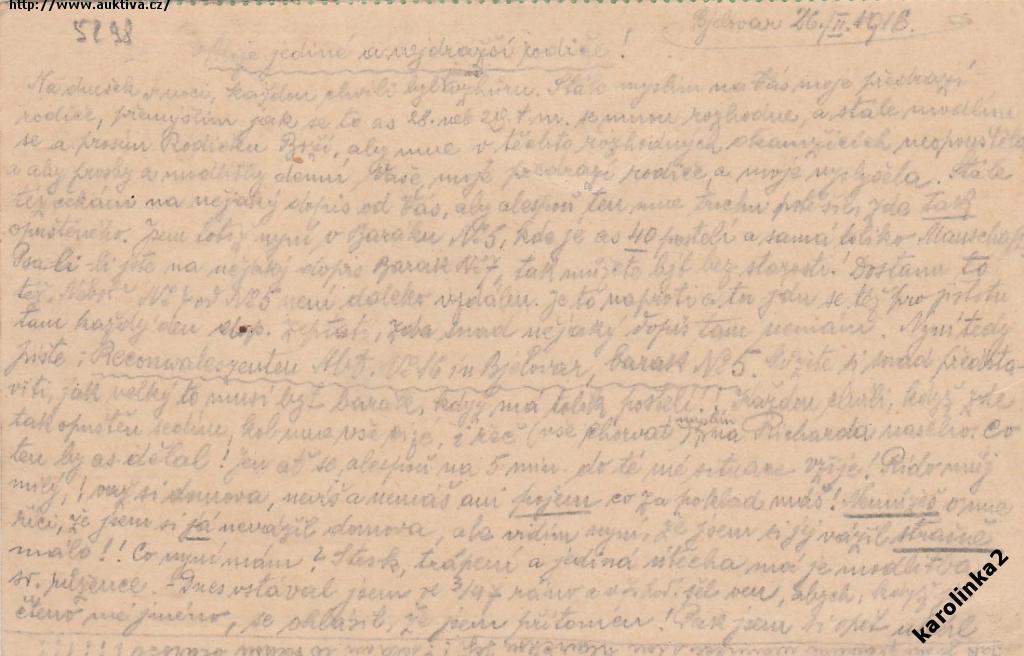 http://www.auktiva.cz/
5298
Bjelovar 26./II. 1918.
Moje jediné a nejdražší rodiče!
Na dnešek v noci, každou chvíli byl vzhůru. Stále myslím na Vás moje předrazí
rodiče, přemýšlím jak se to as 28. neb 29. t. m. se mnou rozhodne, a stále modlím
se a prosím Rodičku Boží, aby mne v těchto rozhodných okamžicích neopouštěla
a aby prosby a modlitby denní Vaše, moje předrazí rodiče, a moje vyslyšela. Stále
též čekám na nějaký dopis od Vás, aby alespoň ten mne trochu potěšil, zde tak
opuštěného. Jsem totiž nyní v Baraku No 5, kde je as 40 postelí a samá tolik Manschaft
Psali-li jste na nějaký dopis Barak No 7, tak můžete být bez starosti! Dostanu to
též. No 7 od No 5 není daleko vzdálen. Je to naproti a tu jdu se též pro jistotu
tam každý den zeptati, zda snad nějaký dopis tam nemám. Nyní tedy
pište: Reconvaleszenten Abt. No 16 in Bjelovar, barak No 5. Můžete si snad předsta-
viti, jak velký to musí být barak, když má tolik postelí!! Každou chvíli, když zde
tak opuštěn sedím, kol mne vše cizí, i řeč (vše Chorvat) myslím na Richarda našeho. Co
ten by as dělal! Jen ať se alespoň na 5 min. do té mé situace vžije! Rído můj
milý, važ si domova, nevíš a nemáš ani pojem co za poklad máš! Nemůžeš o mne
říci, že jsem si já nevážil domova, ale vidím nyní, že jsem si jej vážil strašně
málo!! Co nyní mám? Stesk, trápení a jediná útěcha má je modlitba
sv. růžence. Dnes vstával jsem ve 3/4 7 ráno a šel ven, abych, když
čteno mé jméno, se ohlásil, že jsem přítomen! Pak jsem si opět
karolinka2